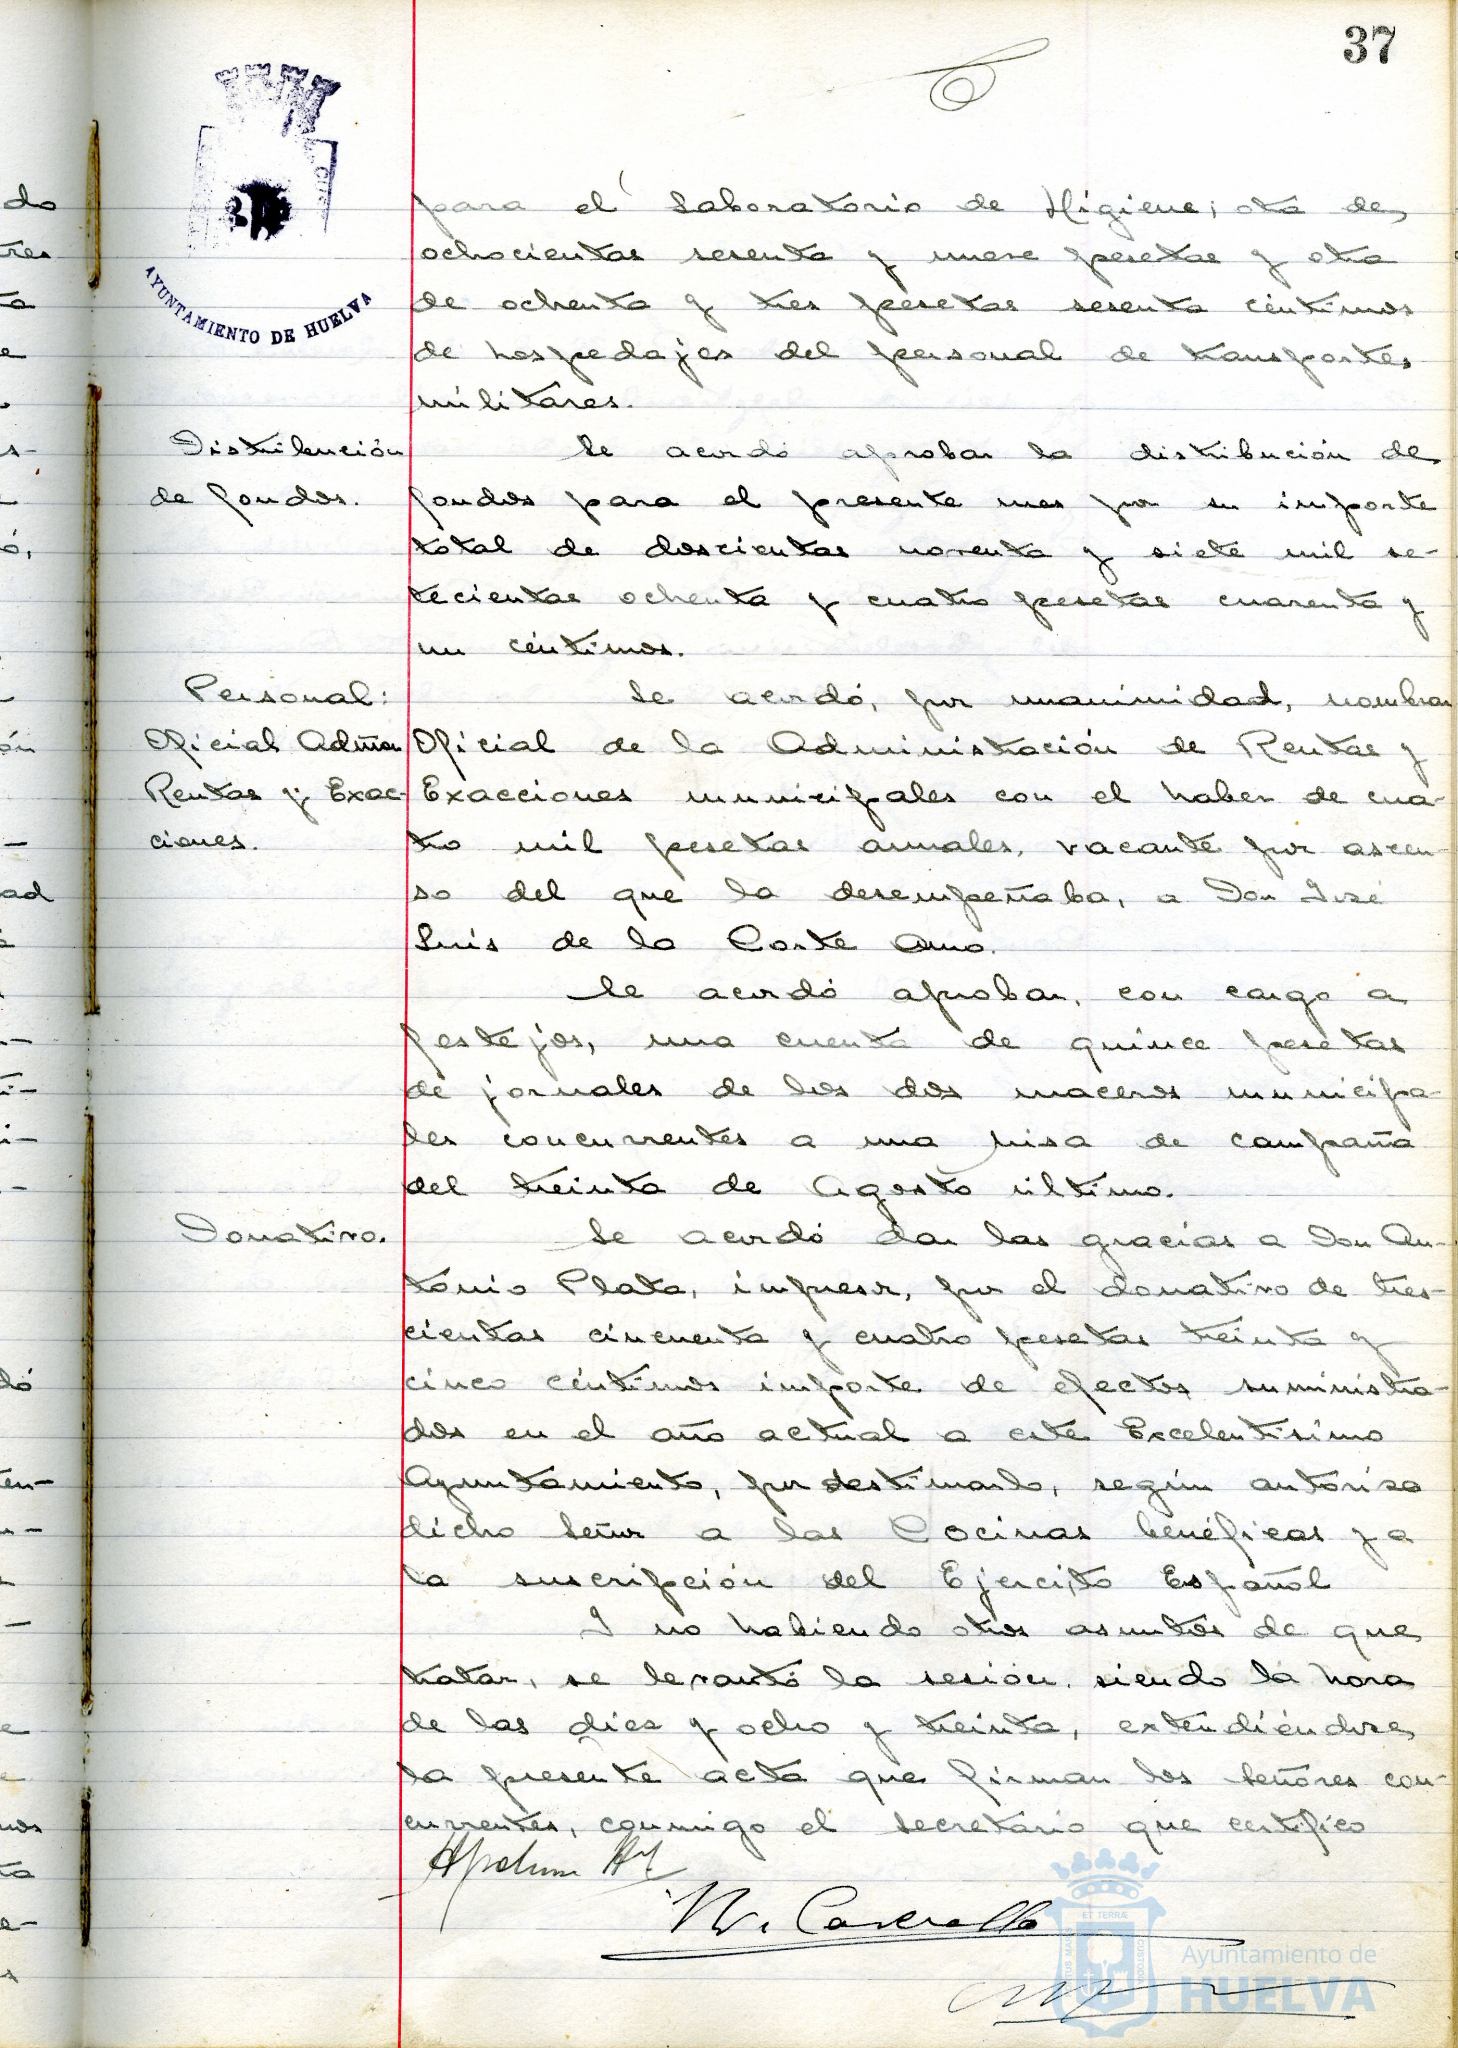 37
AYUNTAMIENTO DE HUELVA
para el Laboratorio de Higiene; otra de
ochocientas sesenta y nueve pesetas y otra
de ochenta y tres pesetas sesenta céntimos
de hospedajes del personal de transportes
militares.
Distribución
de fondos.
Se acordó aprobar la distribución de
fondos para el presente mes por su importe
total de doscientas noventa y siete mil se-
tecientas ochenta y cuatro pesetas cuarenta y
un céntimos.
Personal:
Oficial Admón
Rentas y Exac-
ciones.
Se acordó, por unanimidad, nombrar
Oficial de la Administración de Rentas y
Exacciones municipales con el haber de cua-
tro mil pesetas anuales, vacante por ascen-
so del que la desempeñaba, a Don José
Luis de la Corte Amo.
Se acordó aprobar, con cargo a
festejos, una cuenta de quince pesetas
de jornales de los dos maceros municipa-
les concurrentes a una misa de campaña
del treinta de Agosto último.
Donativo.
Se acordó dar las gracias a Don An-
tonio Plata, impresor, por el donativo de tres-
cientas cincuenta y cuatro pesetas treinta y
cinco céntimos importe de efectos suministra-
dos en el año actual a este Excelentísimo
Ayuntamiento, por destinarlo, según autorisa
dicho Señor a las Cocinas benéficas y a
la suscripción del Ejercito Español
Y no habiendo otros asuntos de que
tratar, se levantó la sesión, siendo la hora
de las diez y ocho y treinta, extendiéndose
la presente acta que firman los Señores con-
currentes, conmigo el secretario que certifico
Ayuntamiento de
HUELVA